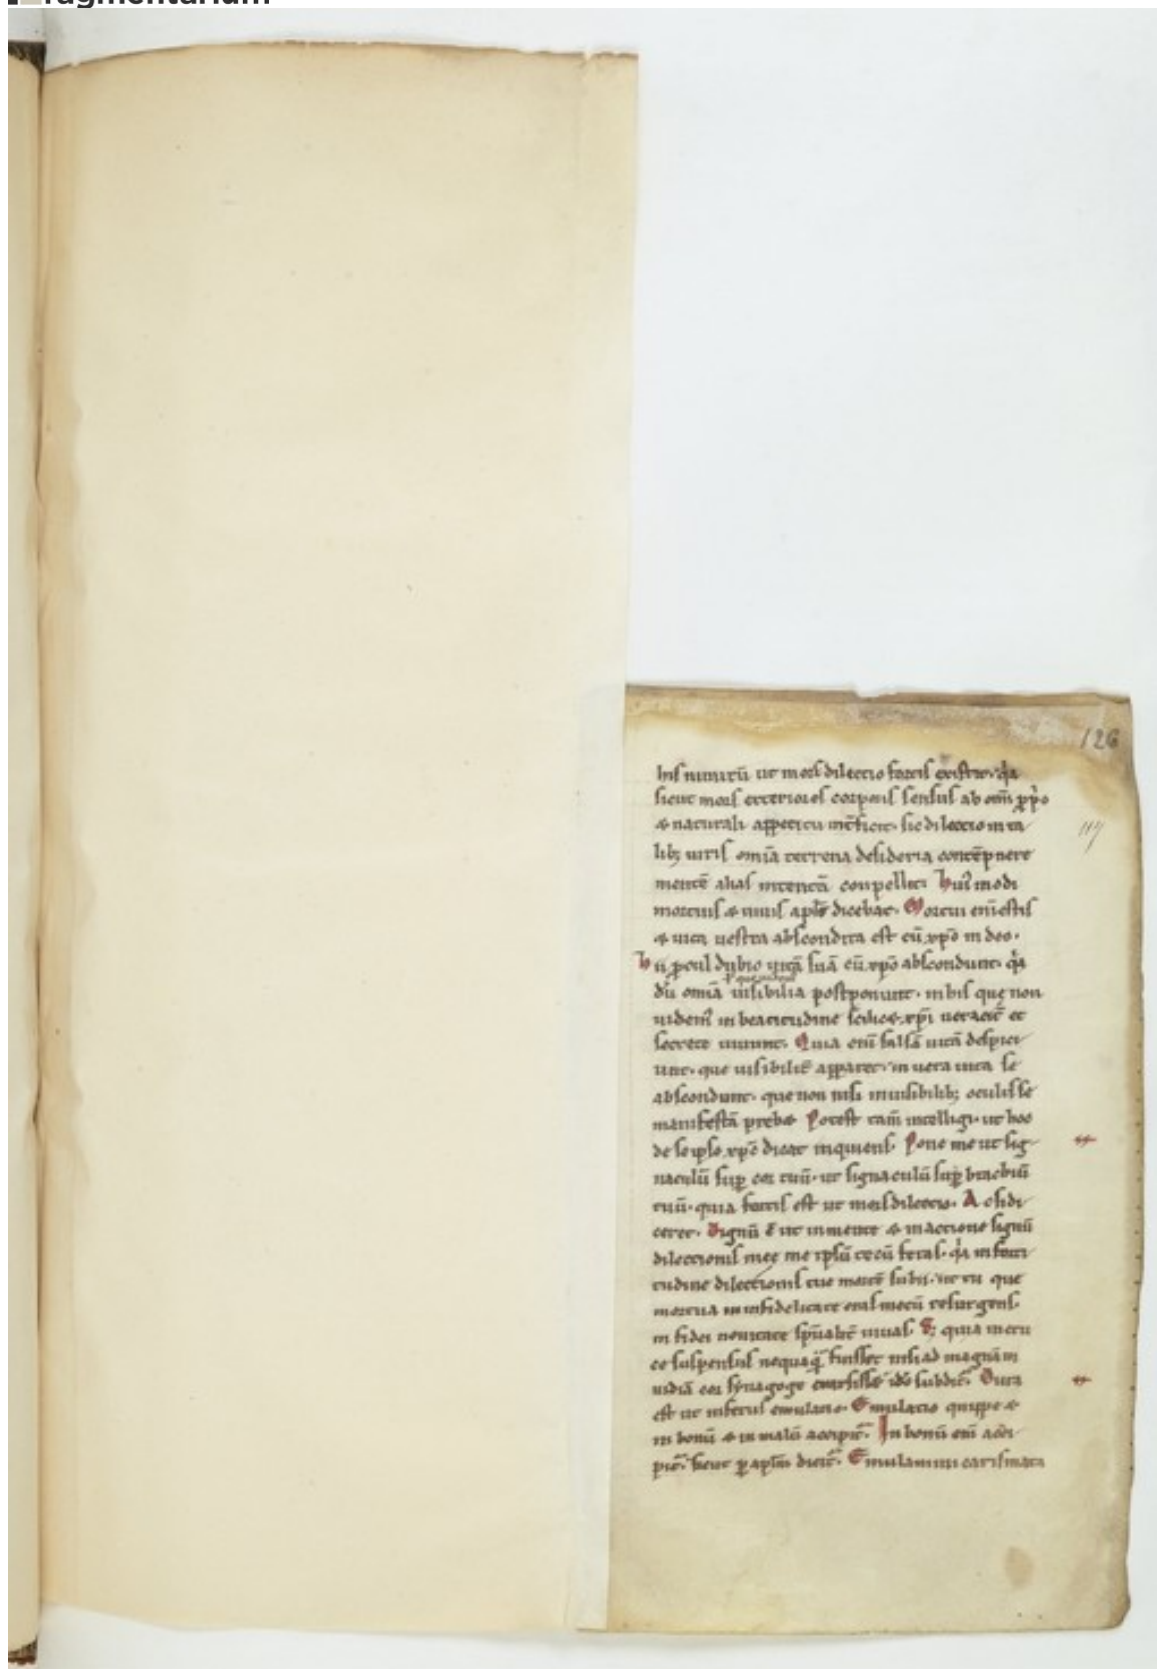 ragmentarium
126
117
sicut mors exteriores corporis sensus ab om̅i
& naturali appetitu · sic dilectio in ta
libꝫ uiris om̅ia terrena desideria contẽpnere
mentẽ alias intentã conpellit. modi
mortuis & uiuis apl̅s dicebat. Mortui eni̅ estis
& uita uestra abscondita est cũ xp̅o in deo.
procul dubio uitã suã cũ xp̅o abscondunt. qͣ
dũ om̅ia uisibilia postponunt. in his quę non
in beatitudine xp̅i et
secrete uiuunt. Quia eni̅ falsã uitã despici
unt. que uisibilit̅ apparet. in uera uita se
abscondunt. que non nisi inuisibilibꝫ oculis se
manifestã prebet. Potest tam̅ intelligi. ut hoc
de se ipso xp̅c dicat inquiens. Pone me ut sig
naculũ sup̲ cor tuũ. ut signaculũ sup̲ brachiũ
tuũ. quia fortis est ut mors dilectio. Ac si di
ceret. Dignũ ẽ ut in mente & in actione signũ
dilectionis meę me ipsũ tecũ feras. qͣ in forti
tudine dilectionis tue mortẽ subii. ut tu que
mortua in infidelitate eras mecũ resurgens.
in fidei nouitate sp̅ualit̅ uiuas. Sꝫ quia in cru
ce suspensus nequaqͣ̃ fuisset nisi ad magnam in
uidiã cor synagoge exarsisset ideo subdit̅. Dura
est ut inferus emulatio. Emulatio quippe &
in bonũ & in malũ accipit̅. In bonũ eni̅ acci
pit̅. sicut p̲ apl̅m dicit̅. Emulamini carismata